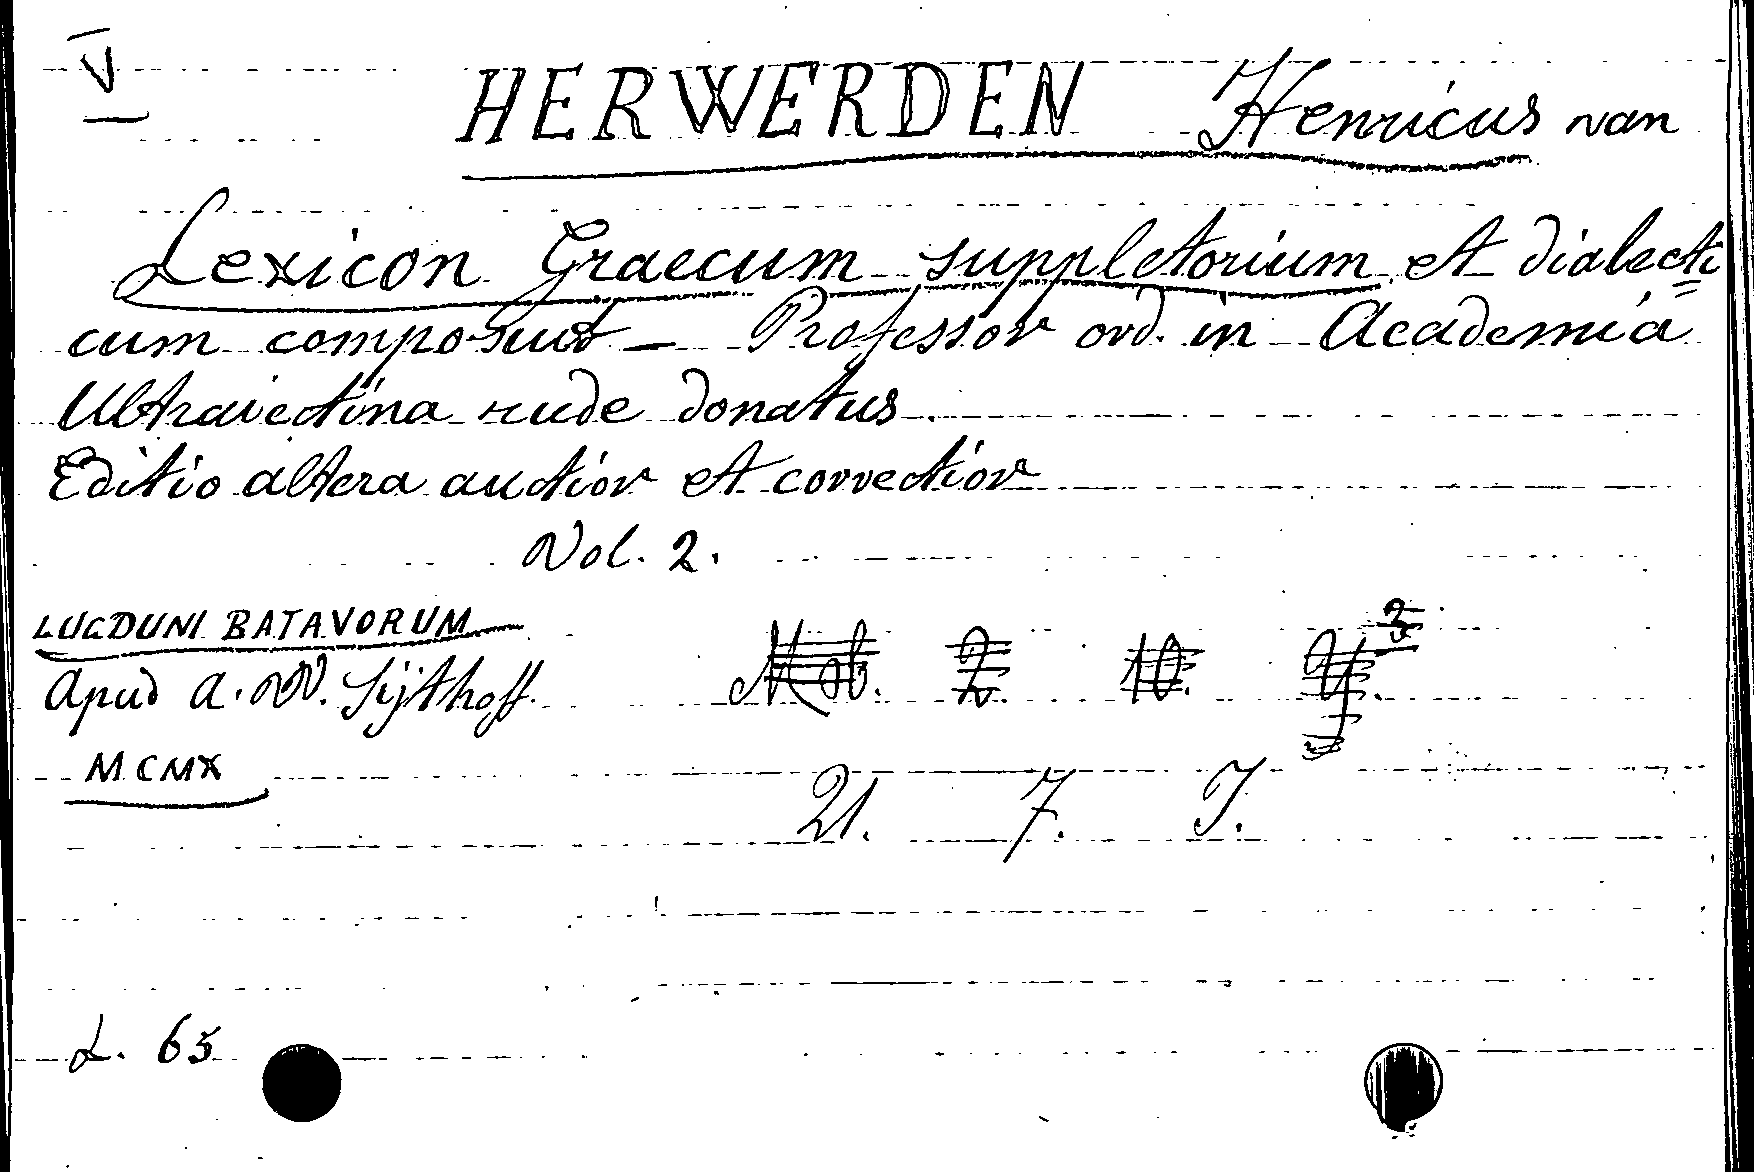 V
HERWERDEN Henricus van
Lexicon Graecum suppletorium et dialecti=
cum composuit — Professor ord. in Academia
Ultraiectina rude donatus.
Editio altera auctior et correctior
Vol. 2.
LUGDUNI BATAVORUM
Apud A. W. Sijthoff.
MCMX
21. 7. I.
L. 65